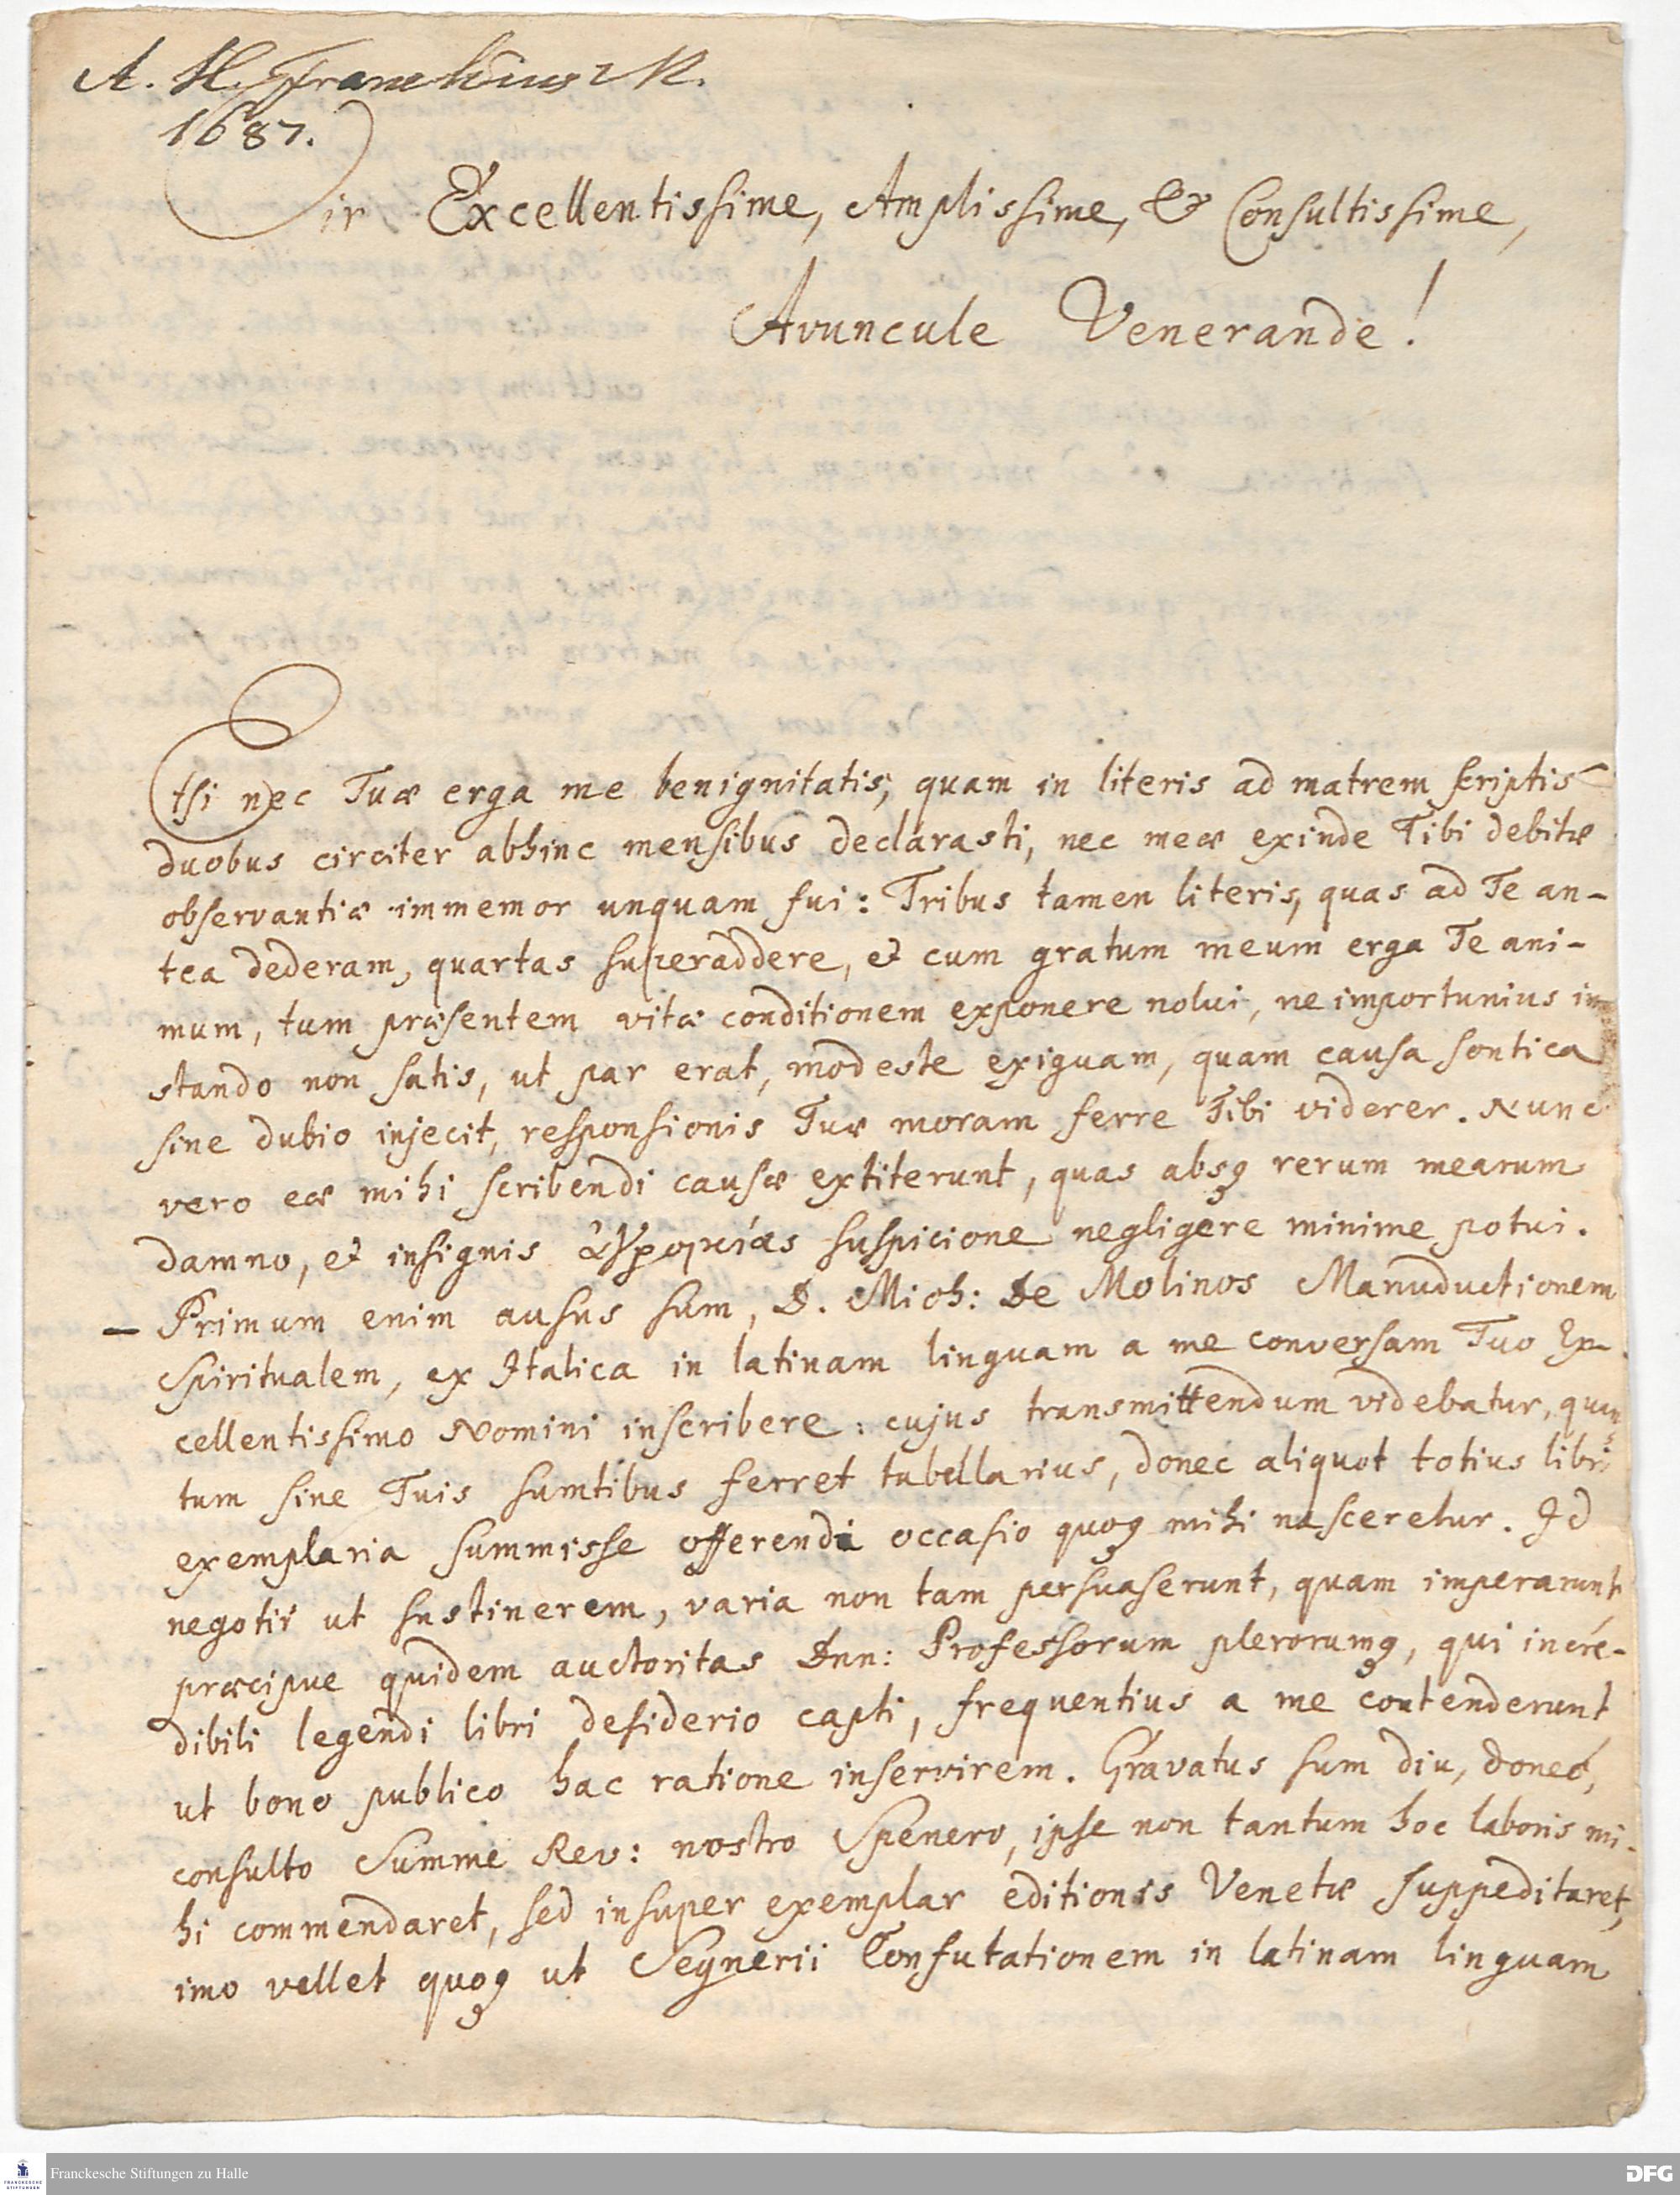 A. H. Franckius M.
1687.
Vir Excellentissime, Amplissime, & Consultissime,
Avuncule Venerande!
Etsi nec Tuæ erga me benignitatis, quam in literis ad matrem scriptis
duobus circiter abhinc mensibus declarasti, nec meæ exinde Tibi debitæ
observantiæ immemor unquam fui: Tribus tamen literis, quas ad Te an-
tea dederam, quartas superaddere, et cum gratum meum erga Te ani-
mum, tum præsentem vitæ conditionem exponere nolui, ne importunius in
stando non satis, ut par erat, modeste exiguam, quam causa sontica
sine dubio injecit, responsionis Tuæ moram ferre Tibi viderer. Nunc
vero eæ mihi scribendi causæ extiterunt, quas absq rerum mearum
damno, et insignis suspicione negligere minime potui.
– Primum enim ausus sum, D. Mich: De Molinos Manuductionem
Spiritualem, ex Italica in latinam linguam a me conversam Tuo Ex-
cellentissimo Nomini inscribere: cujus transmittendum videbatur, quan
tum sine Tuis sumtibus ferret tabellarius, donec aliquot totius libri
exemplaria summisse offerendi occasio quoq mihi nasceretur. Id
negotii ut sustinerem, varia non tam persuaserunt, quam imperarunt
præcipue quidem auctoritas Dnn: Professorum plerorumq, qui incre-
dibili legendi libri desiderio capti, frequentius a me contenderunt
ut bono publico hac ratione inservirem. Gravatus sum diu, donec,
consulto Summe Rev: nostro Spenero, ipse non tantum hoc laboris mi-
hi commendaret, sed insuper exemplar editionis Venetæ suppeditaret,
imo vellet quoq ut Segnerii Confutationem in latinam linguam
Franckesche Stiftungen zu Halle
FRANCKESCHE
STIFTUNGEN
DFG